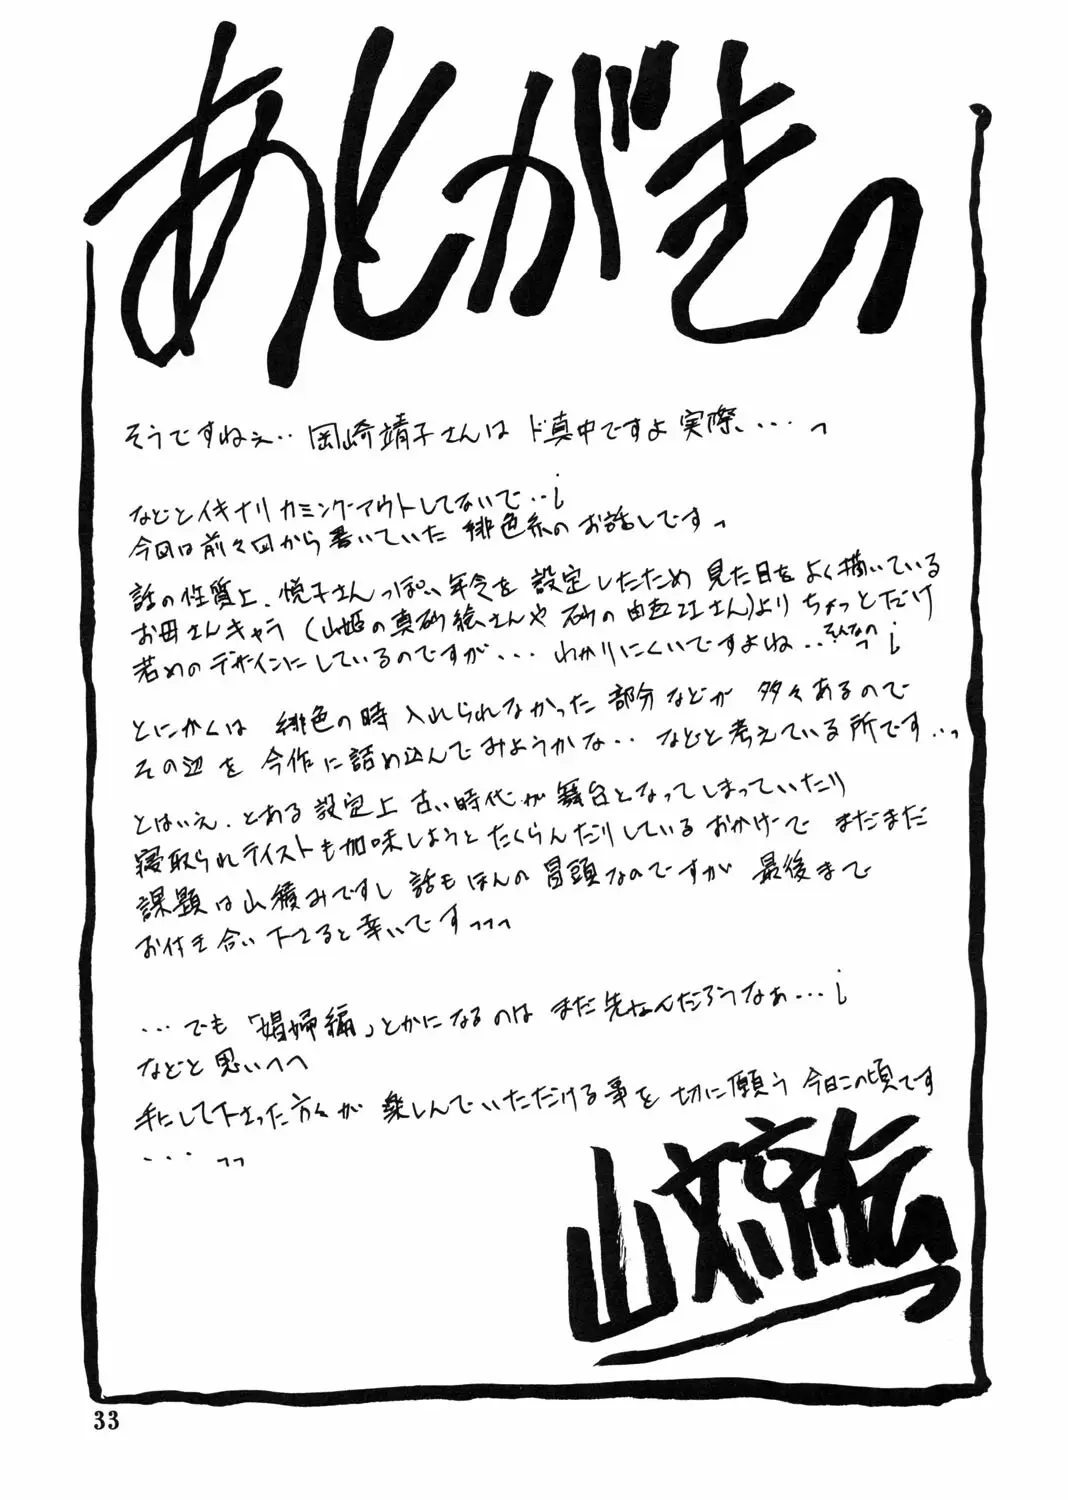 あとがきっ
そうですねぇ‥岡崎靖子さんは ド真中ですよ実際、‥‥っ
などとイキナリ カミングアウトしてないで‥¡
今回は前々回から書いていた 緋色系のお話しですっ
話の性質上、悦子さんっぽい年令を 設定したため 見た目をよく描いている
お母さんキャラ(山姫の真砂絵さんや 砂の由岐江さん)より ちょっとだけ
若めのデザインにしているのですが‥‥ わかりにくいですよね‥そんなのっ¡
とにかくは 緋色の時 入れられなかった 部分などが 多々あるので
その辺を 今作に詰め込んでみようかな‥ などと考えている所です‥っ
とはいえ、とある設定上 古い時代が舞台となってしまっていたり
寝取られテイストも加味しようと たくらんだりしているおかげで まだまだ
課題は山積みですし 話もほんの 冒頭なのですが 最後まで
お付き合い下さると幸いですっっっ
‥‥でも「娼婦編」とかになるのは まだ先なんだろうなぁ‥‥¡
などと思いつつ
手にして下さった方々が 楽しんでいただける事を 切に願う 今日この頃です
‥‥っっ
山文京伝
33